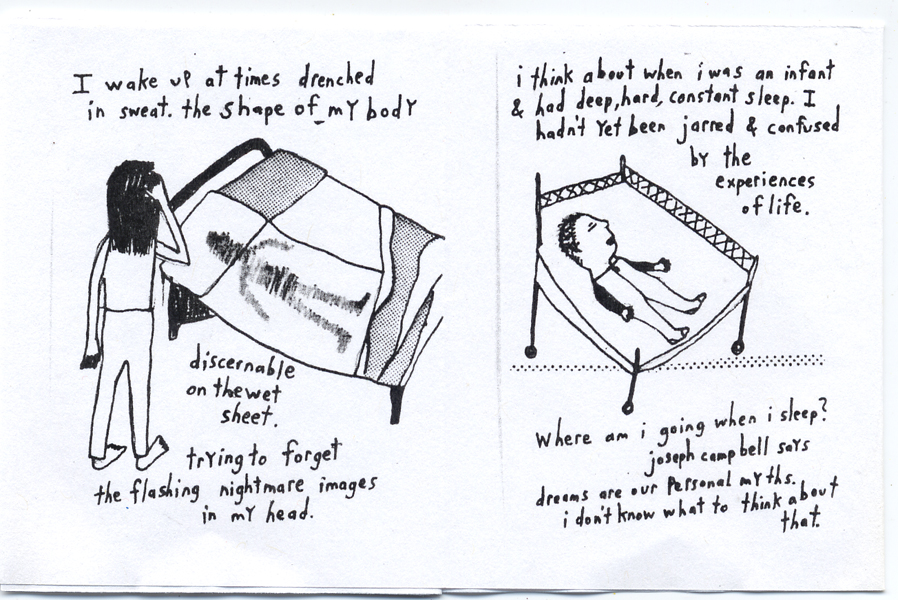 I wake up at times drenched
in sweat. the shape of my body
discernable
on the wet
sheet.
trying to forget
the flashing nightmare images
in my head.
i think about when i was an infant
& had deep, hard, constant sleep. I
hadn't yet been jarred & confused
by the
experiences
of life.
Where am i going when i sleep?
joseph campbell says
dreams are our personal myths.
i don't know what to think about
that.